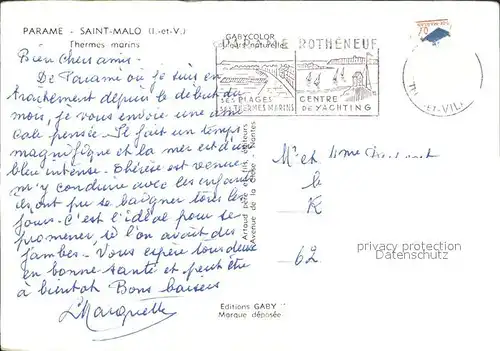 PARAME - SAINT-MALO (I.-et-V.)
Thermes marins
GABYCOLOR
Couleurs naturelles
ROTHENEUF
SES PLAGES
SES THERMES MARINS
CENTRE
DE YACHTING
Bien chers amis -
De Paramé où je suis en
traitement depuis le début du
mois, je vous envoie une ami-
cale pensée - Il fait un temps
magnifique et la mer est d'un
bleu intense. Thérèse est venue
m'y conduire avec les enfants
ils ont pu se baigner tous les
jours. C'est l'idéal pour se
promener, si l'on avait des
jambes - Vous espère tous deux
en bonne santé et peut être
à bientôt Bons baisers
Marguette
Artaud père et fils, éditeurs
Avenue de la Close - Nantes
Mr et Mme
62
privacy protection
Stampedia.com
Editions GABY
Marque déposée